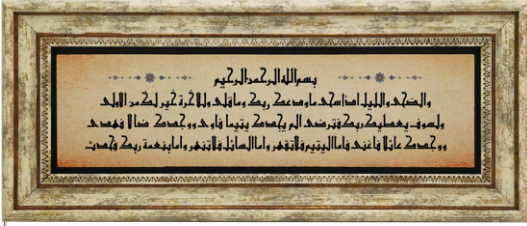 بسم الله الرحمن الرحيم
والضحى والليل اذا سجى ما ودعك ربك وما قلى وللآخرة خير لك من الاولى
ولسوف يعطيك ربك فترضى الم يجدك يتيما فاوى ووجدك ضالا فهدى
ووجدك عائلا فاغنى فاما اليتيم فلا تقهر واما السائل فلا تنهر واما بنعمة ربك فحدث